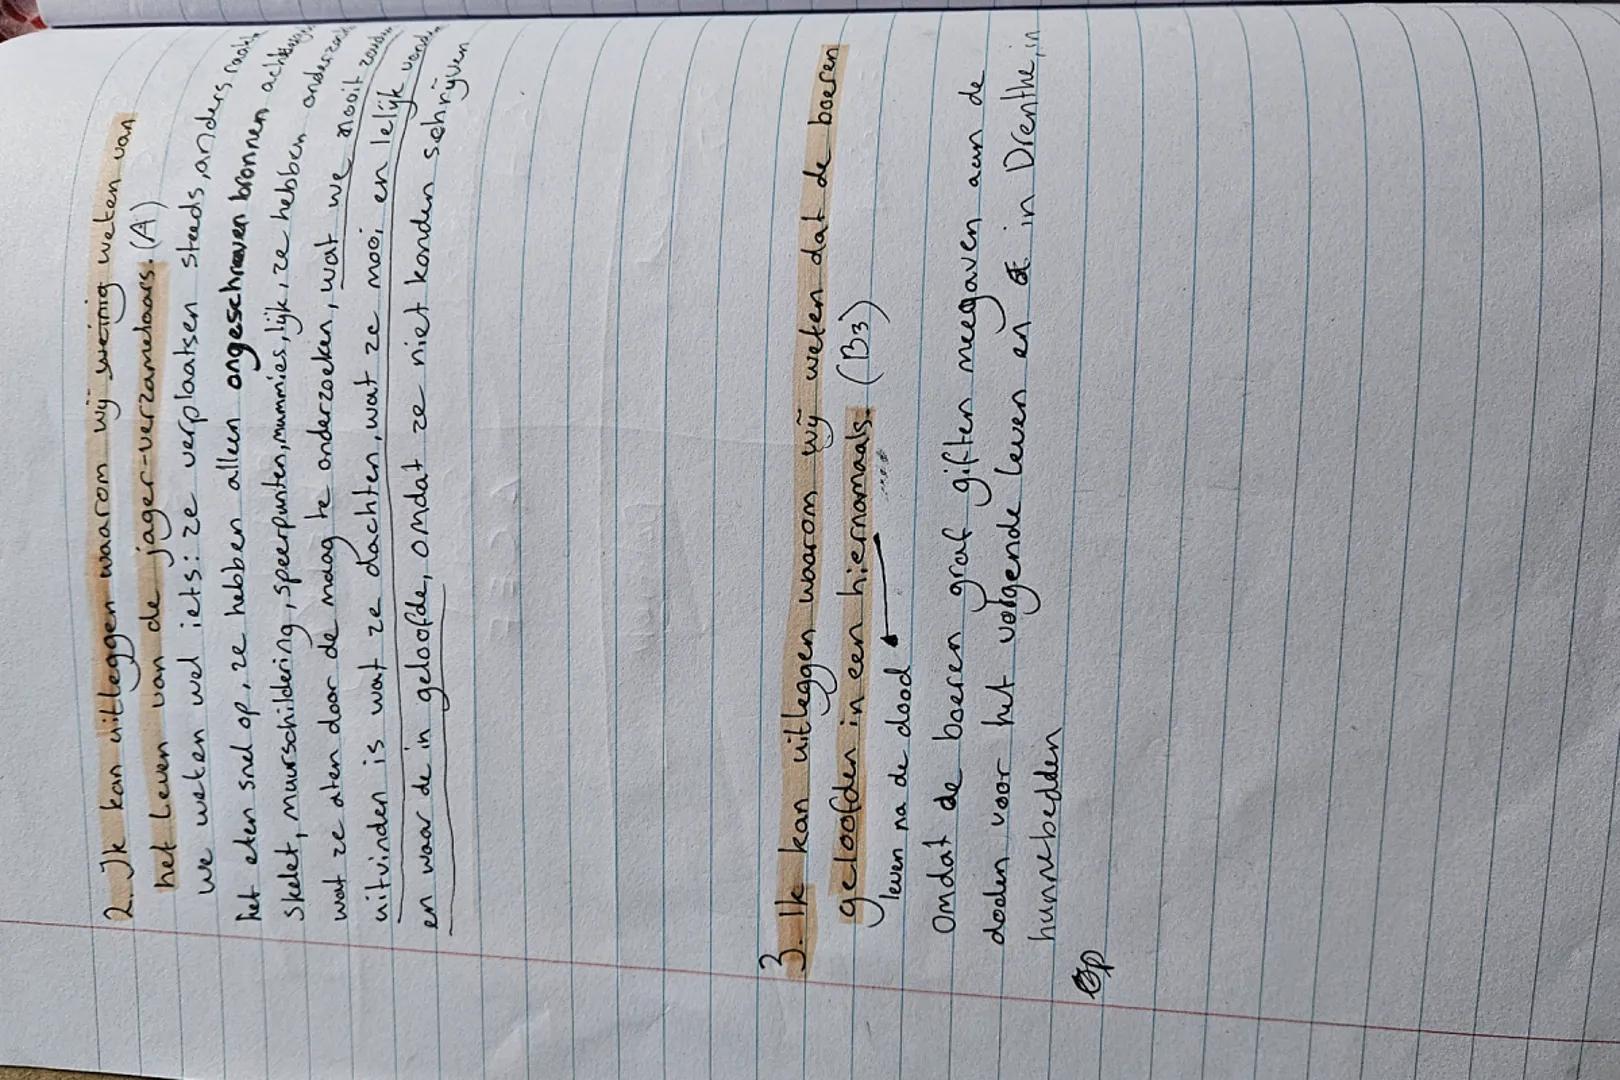 2. Ik kan uitleggen waarom wij weinig weten van
het leven van de jager-verzamelaars. (A)
we weten wel iets: ze verplaatsen steeds, anders raakt
het eten snel op, ze hebben alleen ongeschreven bronnen
skelet, muurschildering, speerpunten, mummies, lijk, ze hebben
wat ze aten door de maag te onderzoeken, wat we nooit zouden
uitvinden is wat ze dachten, wat ze mooi en lelijk
en waar de in geloofde, omdat ze niet konden schrijven
3. Ik kan uitleggen waarom wij weten dat de boeren
geloofden in een hiernamaals. (B3)
leven na de dood
Omdat de boeren graf giften meegaven aan de
doden voor het volgende leven en in Drenthe, in
hunnebedden
Op